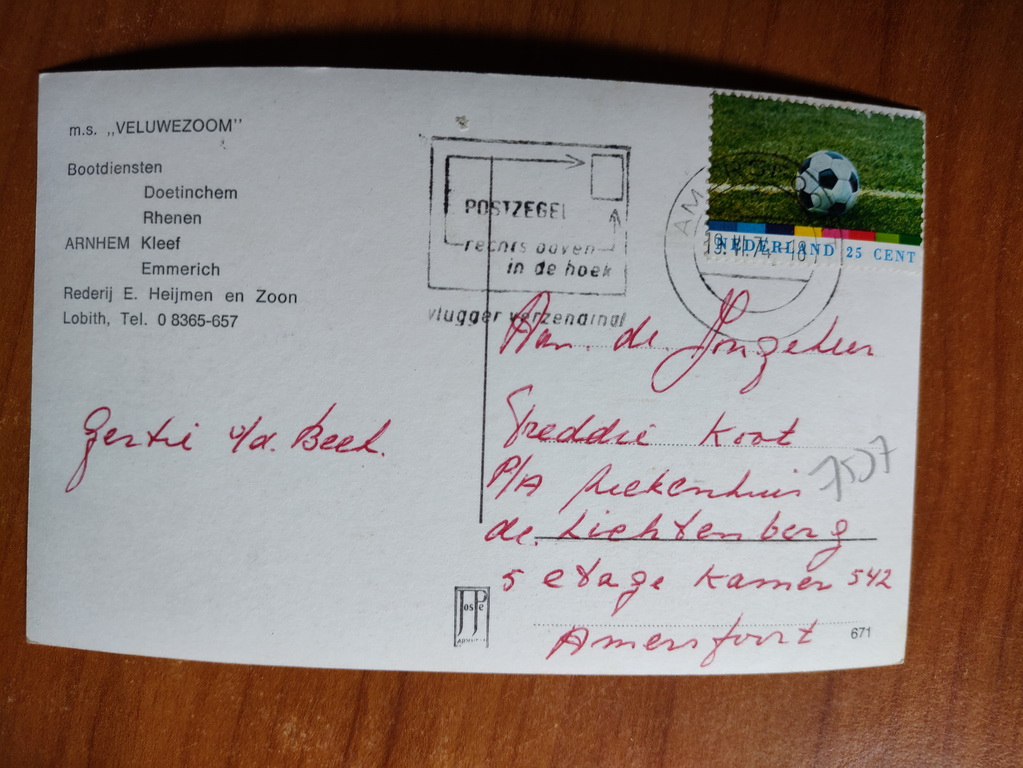 m.s. ,,VELUWEZOOM''
Bootdiensten
Doetinchem
Rhenen
ARNHEM Kleef
Emmerich
Rederij E. Heijmen en Zoon
Lobith, Tel. 0 8365-657
Gertie v/d. Beek.
POSTZEGEL
rechts boven
in de hoek
vlugger verzending
NEDERLAND 25 CENT
Aan. de. Jongeheer
Freddie Koot
P/A Ziekenhuis
de. Lichtenberg
5 etage Kamer 542
Amersfoort
671